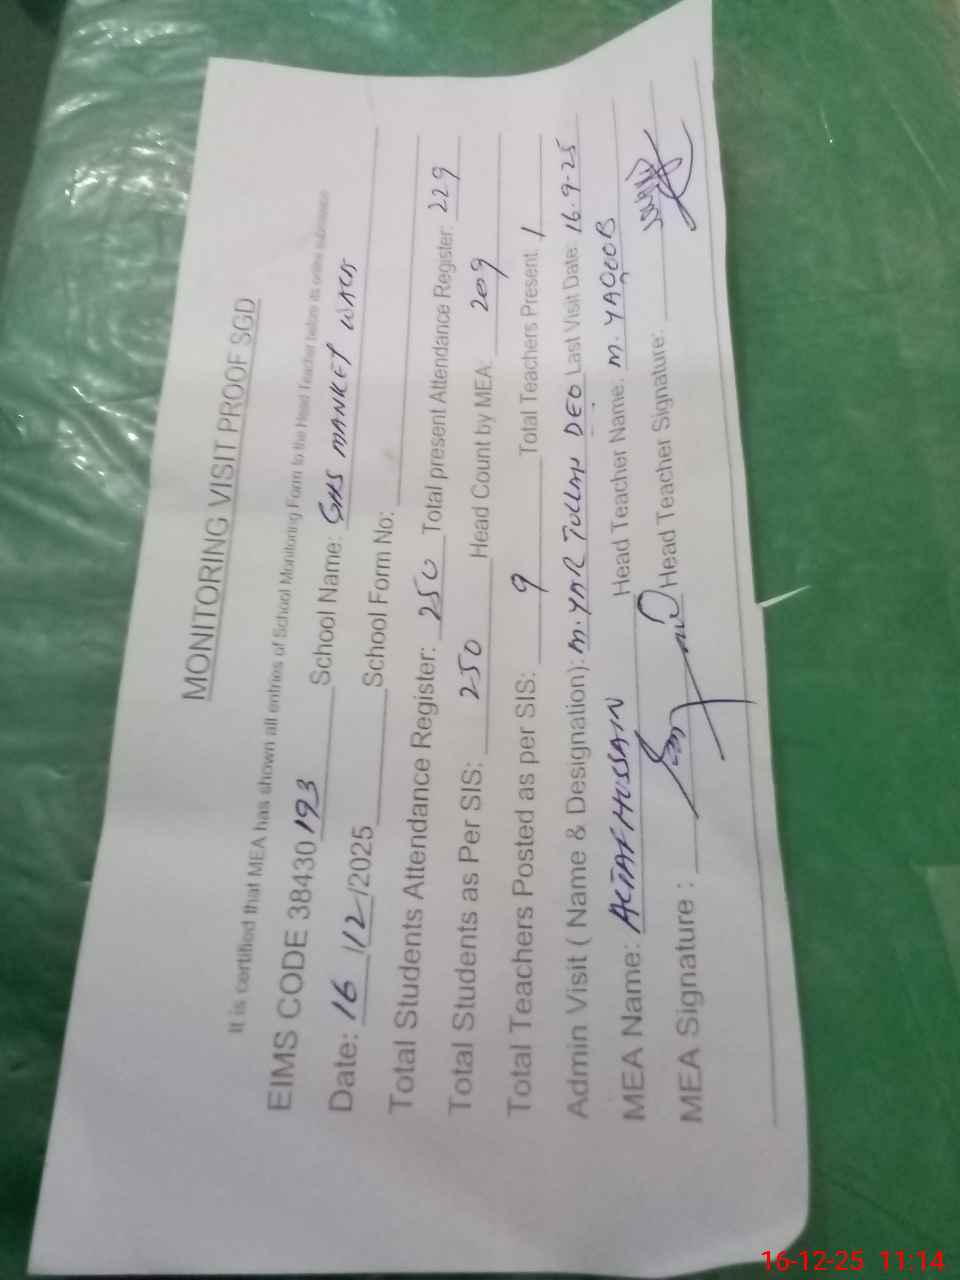 MONITORING VISIT PROOF SGD
It is certified that MEA has shown all entries of School Monitoring Form to the Head Teacher before its online submission
EIMS CODE 38430193 School Name: GHS MANKEY WALA
Date: 16/12/2025 School Form No:
Total Students Attendance Register: 250 Total present Attendance Register: 229
Total Students as Per SIS: 250 Head Count by MEA: 209
Total Teachers Posted as per SIS: 9 Total Teachers Present: 1
Admin Visit ( Name & Designation): M. YAR TULLAH DEO Last Visit Date: 16-9-25
MEA Name: ALTAF HUSSAIN Head Teacher Name: M. YAQOOB
MEA Signature : Head Teacher Signature:
16-12-25 11:14